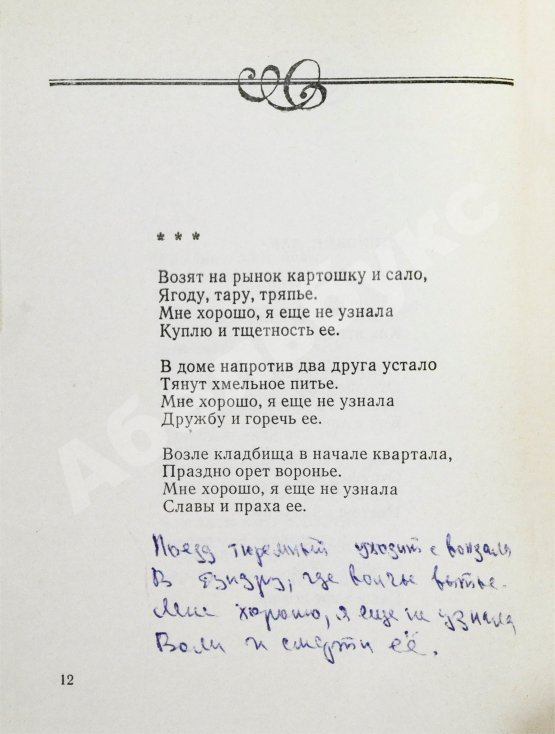 * * *
Возят на рынок картошку и сало,
Ягоду, тару, тряпье.
Мне хорошо, я еще не узнала
Куплю и тщетность ее.
В доме напротив два друга устало
Тянут хмельное питье.
Мне хорошо, я еще не узнала
Дружбу и горечь ее.
Возле кладбища в начале квартала,
Праздно орет воронье.
Мне хорошо, я еще не узнала
Славы и праха ее.
Поезд тюремный уходит с вокзала
В где волчье вытье.
Мне хорошо, я еще не узнала
Воли и смерти её.
12